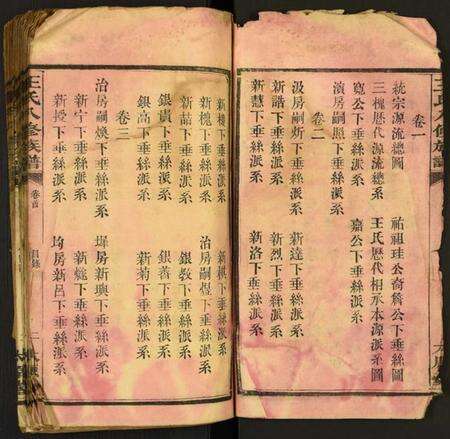 卷一
統宗源流總圖
祐祖珪公奇簷公下垂絲系
三槐歷代源流總系
王氏歷代相承本源派系圖
寬公下垂絲系
嘉公下垂絲系
演房嗣照下垂絲派系
卷二
汲房嗣炘下垂絲派系
新達下垂絲派系
新誥下垂絲派系
新烈下垂絲派系
新慧下垂絲派系
新洛下垂絲派系
下垂絲派系
下垂絲派系
新槐下垂絲派系
治房嗣恨下垂絲派系
新喆下垂絲派系
銀教下垂絲派系
銀貴下垂絲派系
銀善下垂絲派系
銀高下垂絲派系
新菊下垂絲派系
卷三
治房嗣煥下垂絲派系
墀房新興下垂絲派系
新宁下垂絲派系
下垂絲派系
新授下垂絲派系
均房新呂下垂絲派系
王氏八修族譜
卷首
目錄
二